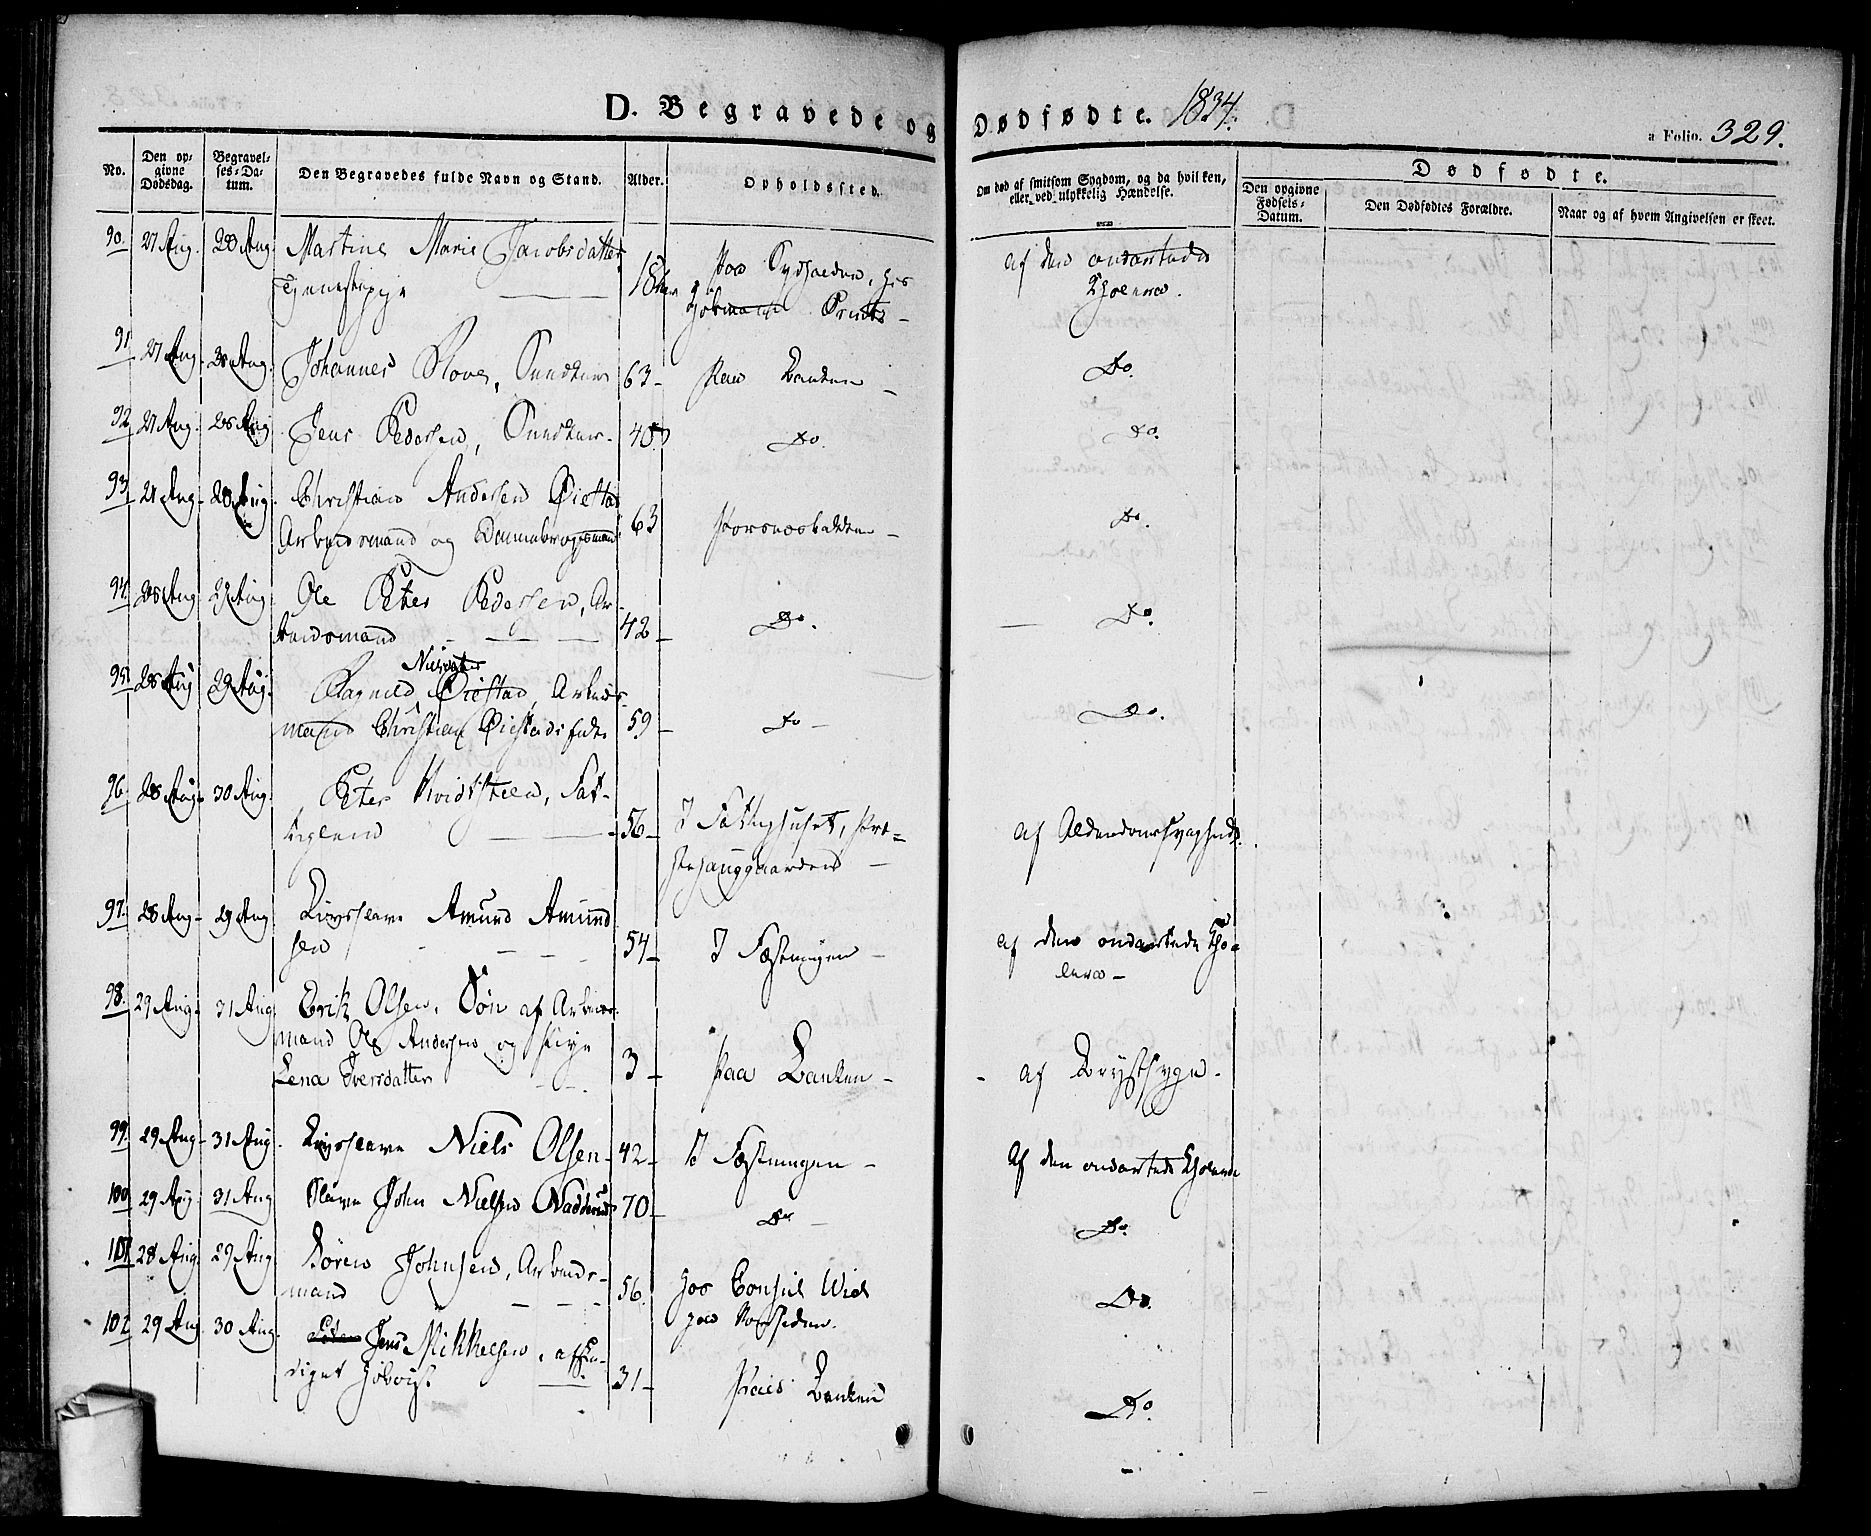 D. Begravede og Dødfødte. 1834.
a Folio. 329.
No.
Den opgivne Dødsdag.
Begravelses-Datum.
Den Begravedes fulde Navn og Stand.
Alder.
Opholdssted.
Om død af smitsom Sygdom, og da hvilken, eller ved ulykkelig Hændelse.
Dødfødte.
Den opgivne Fødsels-Datum.
Den Dødfødtes Forældre.
Naar og af hvem Angivelsen er skeet.
90. 27 Aug. 28 Aug. Martine Marie Jacobsdatter,
Tjenestepige 18 paa Sydsiden, hos
af den ondartede
Cholera.
91 27 Aug. 28 Aug. Johannes 63 paa Banken
Do.
92 27 Aug. 28 Aug Jens Pedersen, 40 Do.
Do.
93 27 Aug. 28 Aug. Christian Andersen Øiestad
Arbeidsmand og Dannebrogsmand 63
Do.
94. 28 Aug 29 Aug Ole Peter Pedersen, Ar-
beidsmand 42 Do.
Do.
95. 28 Aug 29 Aug. Ragnild Øiestad, Arbeids-
mand Christian Øiestads 59 Do
Do.
96. 28 Aug. 30 Aug. Peter Hvidsteen, Fat-
tiglem 56 I Fattighuset,
af Alderdomssvaghed.
97. 28 Aug. 29 Aug Livsslave Amund Amund
sen 54 I Fæstningen
af den ondartede Cho-
lera
98. 29 Aug. 31 Aug. Erik Olsen, Søn af Arbeids-
mand Ole Andersen og Pige
Lena Iversdatter 3 paa Banken
af Brystsyge.
99. 29 Aug. 31 Aug. Livsslave Niels Olsen 42 I Fæstningen
Af den ondartede Cholera
100 29 Aug 31 Aug Slave John Nielsen 70 Do
Do.
101 28 Aug 29 Aug Sören Johnsen, Arbeids-
mand 56 hos Consul Wiel
paa Nordsiden.
Do.
102 29 Aug. 30 Aug. Jens Mikkelsen, afskee-
diget 31 Paa Banken
Do.